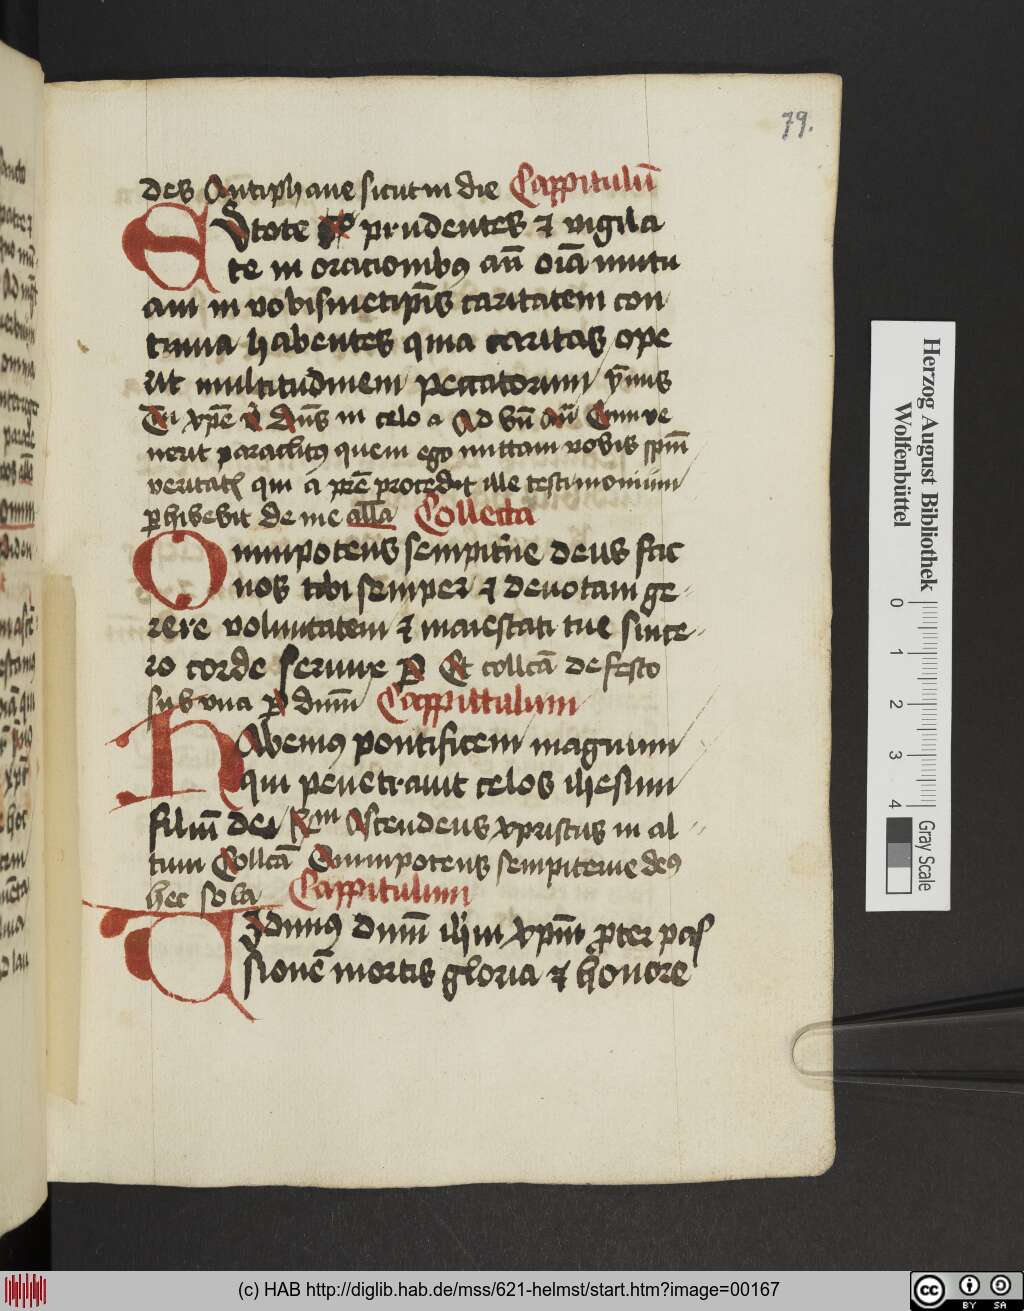 79.
des Antiphane sicut in die Cappitulū
Estote prudentes & vigila
te in oracionibꝰ an̄ oīa mutu
am in vobismetip̄is caritatem con
tinua habentes quia caritas ope
rit multitudinem peccatorum ȳmus
xp̄e in celo a Ad Cum ve
nerit paraclitꝰ quem ego mittam vobis spm̄
veritatis qui a pr̄e procedit ille testimonium
ꝑhibebit de me all̄a Collecta
Omnipotens sempit̄ne deus fac
nos tibi semper & deuotam ge-
rere voluntatem & maiestati tue since-
ro corde seruire P Et coll̄cā de festo
sub vna P dnm̄ Cappittulum
Habemꝰ pontificem magnum
qui penetrauit celos ihesum
filiū dei Rm Ascendens xpristus in al-
tum Coll̄cā Omnipotens sempiterne deꝰ
hec sola Cappitulum
Vidimꝰ dnm̄ ihm xpm̄ ꝓpter pas
sionē mortis gloria & honore
Herzog August Bibliothek
Wolfenbüttel
0 1 2 3 4
Gray Scale
(c) HAB http://diglib.hab.de/mss/621-helmst/start.htm?image=00167
cc BY SA